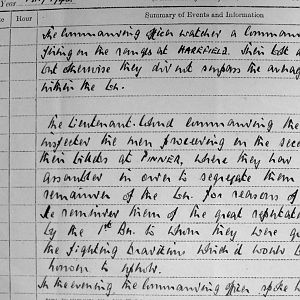 Year
Hour
Summary of Events and Information
The Commanding Officer watched a Comman
firing on the range at HAREFIELD. Their
but otherwise they did not surpass the average
within the Bn.
The Lieutenant-Colonel commanding the
inspected the men proceeding on the
their billets at PINNER, where they had
assembled in order to segregate them
remainder of the Bn. for reasons of
He reminded them of the great reputation
by the 1st Bn. to whom they were go
the fighting traditions which it would b
honour to uphold.
In the evening the Commanding Officer spoke